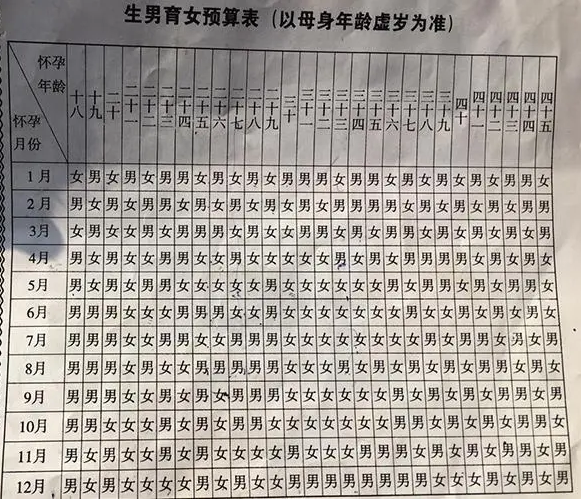 生男育女预算表（以母身年龄虚岁为准）
怀孕
年龄
怀孕
月份
十八 十九 二十 二十一 二十二 二十三 二十四 二十五 二十六 二十七 二十八 二十九 三十 三十一 三十二 三十三 三十四 三十五 三十六 三十七 三十八 三十九 四十 四十一 四十二 四十三 四十四 四十五
1月 女男女男女男男女男女男女男男男女男男女男女男女男女男男女
2月 男女男女男男女男女男女男女男女男女男男女男女男女男女男男
3月 女男女女男女男男男女男女女男男女男女男男女男女男女男女男
4月 男女男女女男男女女女女女女女女男女男女男男男男男女男女女
5月 男女男女男男女女女女女男女女女女女女男男女男女男女男男女
6月 男男男女女女男男男女女男女女女女女女女女男女男女男女男男
7月 男男男女女男男女女男男男女女女女女女女女男女男男男女男女
8月 男男男女男女女男男男男男女女女女女女女女女男女男女男女男
9月 男男男女女男女男女男男男女女女女女女男女男女男女男男女男
10月 男男女女女男女男女男男女女女女女女女男男女男女男女男男女
11月 男女男女女男女男女女女女男女女女男男男男女男女男女男男
12月 男女男女女女女男女男女男男男男男男男男男女女女男女男男女